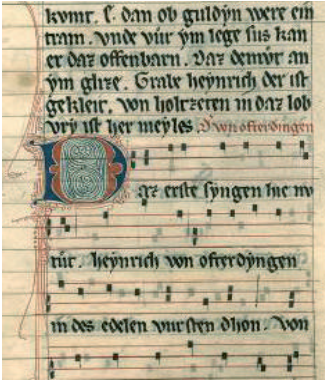 kvmt. ſ. dan ob guldẏn were ein
tram. vnde vůr ẏm lege ſus kan
er daz offenbarn. Daz
ẏm glize. Grale heẏnrich der iſt
gekleit. von holtzeten in daz lob
vrẏ iſt her meẏles. D von ofterdingen
Daz erſte ſẏngen hie nv
tůr. heẏnrich von ofterdẏngen
in des edelen vurſten dhon. Von